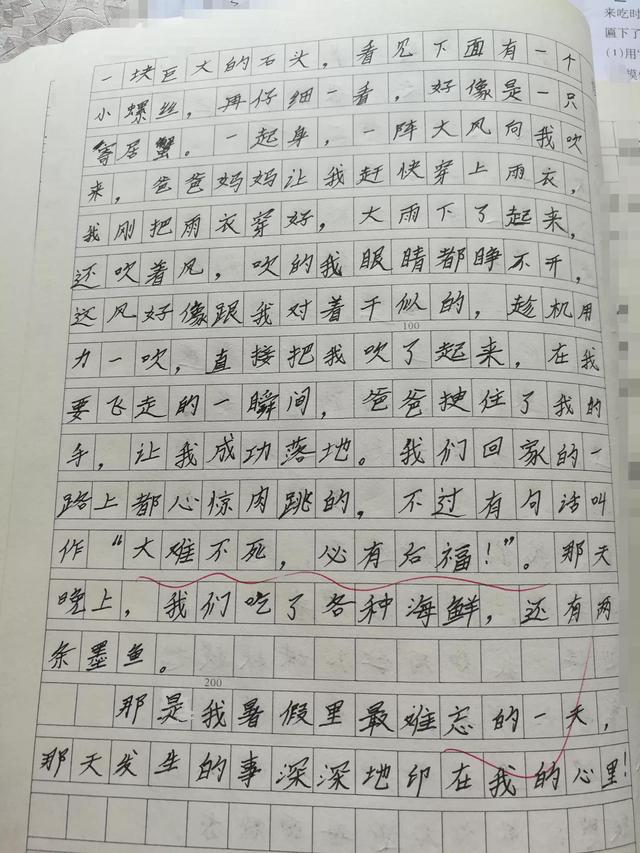 一块巨大的石头，看见下面有一个
小螺丝，再仔细一看，好像是一只
寄居蟹。一起身，一阵大风向我吹
来，爸爸妈妈让我赶快穿上雨衣，
我刚把雨衣穿好，大雨下了起来，
还吹着风，吹的我眼睛都睁不开，
这风好像跟我对着干似的，趁机用
100
力一吹，直接把我吹了起来，在我
要飞走的一瞬间，爸爸拽住了我的
手，让我成功落地。我们回家的一
路上都心惊肉跳的，不过有句话叫
作“大难不死，必有后福！”。那天
晚上，我们吃了各种海鲜，还有两
条墨鱼。
200
那是我暑假里最难忘的一天，
那天发生的事深深地印在我的心里！
来吃时
匾下了
(1)用